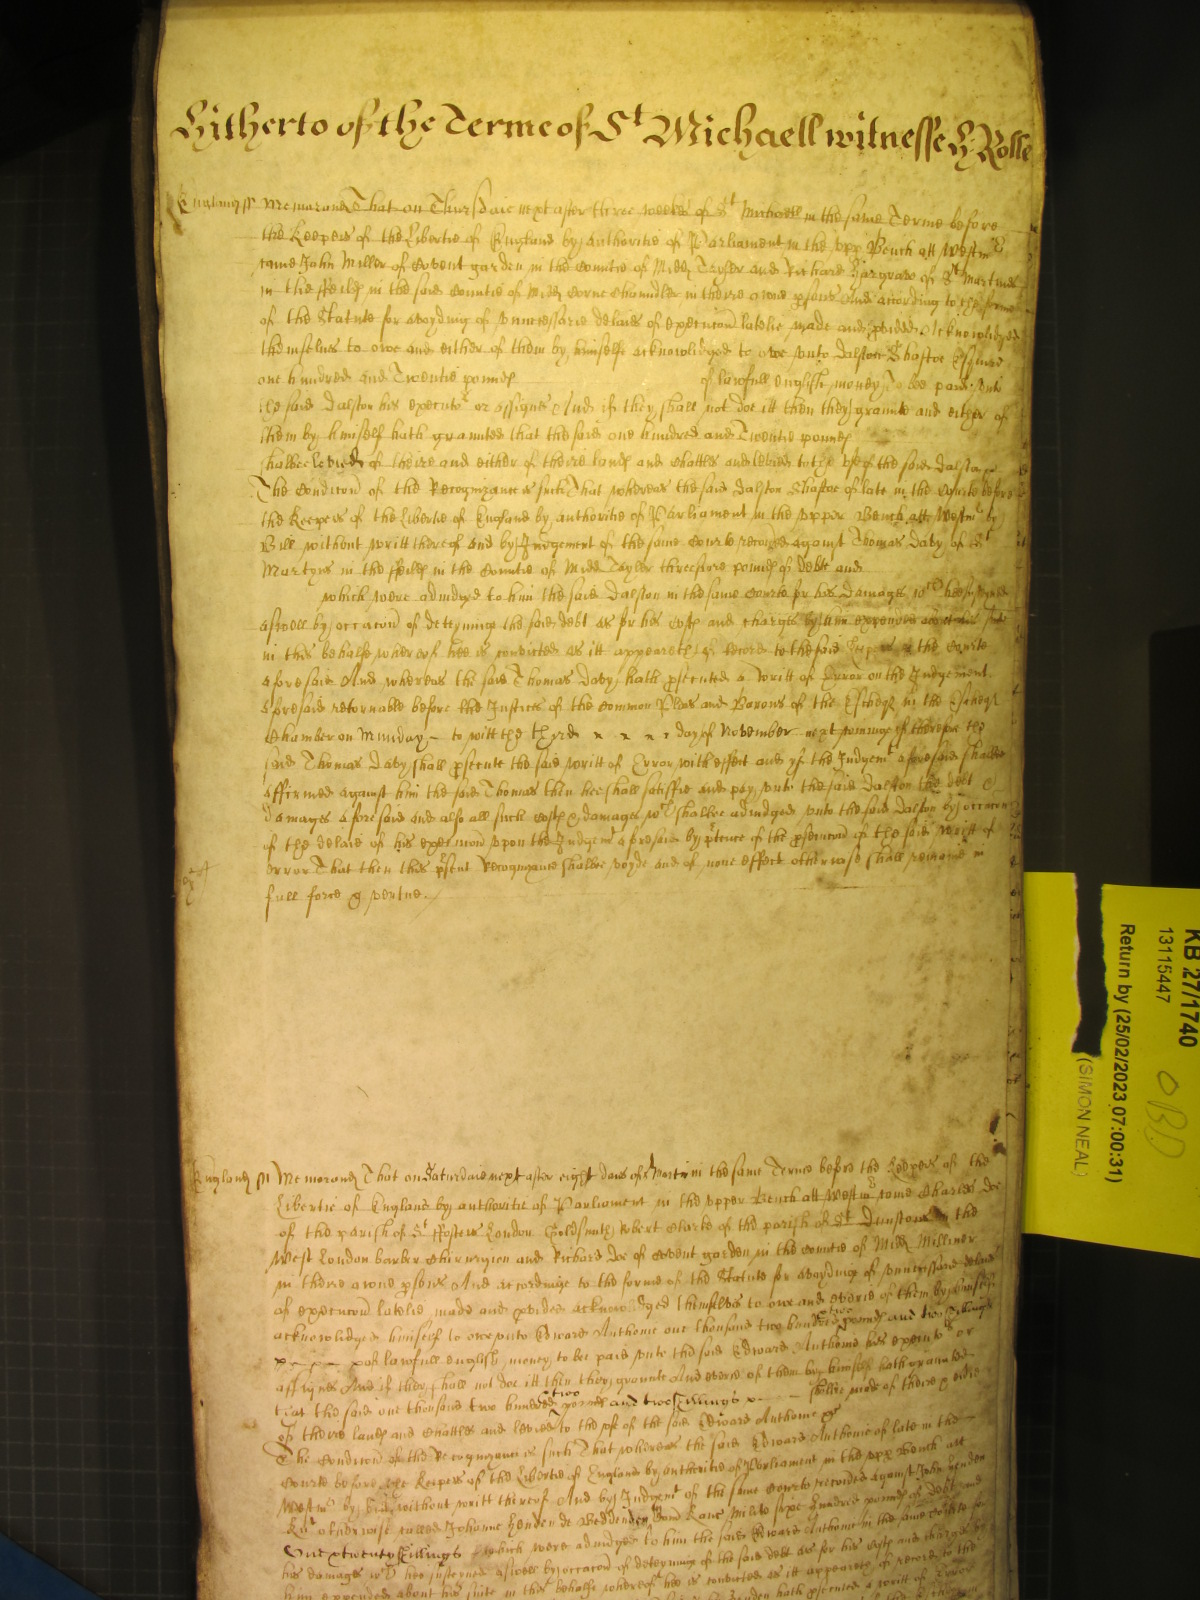 Hitherto of the Terme of St Michaell witnesse H Rolle
England ss Memorand That on Thursdaie next after three weekes of St Michaell in the same Terme before
the Keepers of the Libertie of England by authoritie of Parliament in the upp Bench att Westmr
came John Miller of Covent garden in the Countie of Midd Taylor and Richard Hargrave of St Martines
in the ffeilds in the said Countie of Midd Corne Chaundler in theire owne psons And according to the forme
of the Statute for avoyding of unnecessarie delaies of execucon latelie made and pvided Acknowledged
themselves to owe and either of them by himselfe acknowledged to owe unto Dalston Shaftoe Esquire
one hundred and Twentie pounds of lawfull english money To bee paid unto
the said Dalston his executors or assignes And if they shall not doe itt then they graunte and either of
them by himself hath graunted that the said one hundred and Twentie pounds
shalbee levied of theire and either of theire lands and Chattles and levied to the use of the said Dalston
The Condicon of the Recognizance is such That whereas the said Dalston Shaftoe of late in the Courte before
the Keepers of the Libertie of England by authoritie of Parliament in the upper Bench att Westmr by
Bill without writt thereof and by Judgement of the same Courte recoved against Thomas Davy of St
Martyns in the ffeilds in the Countie of Midd Taylor threescore pounds of debt and
which were adiudged to him the said Dalston in the same Courte for his Damages wch hee susteyned
aswell by occacon of deteyning the said debt as for his Costs and charges by him expended about his suite
in this behalfe whereof hee is convicted as itt appeareth of record to the said Keepers in the Courte
aforesaid And whereas the said Thomas Davy hath psecuted a writt of Error on the Judgement
aforesaid retornable before the Justices of the Common Pleas and Barons of the Excheqr in the Excheqr
Chamber on Munday to witt the third day of November next comming If therefore the
said Thomas Davy shall psecute the said writt of Error with effect and yf the Judgemt aforesaid shalbee
affirmed against him the said Thomas then hee shall satisfie and pay unto the said Dalston the debt &
damages aforesaid and also all such costs & damages wch shalbee adiudged unto the said Dalston by occacon
of the delaie of his execucon upon the Judgemt aforesaid by ptence of the psecucon of the said writt of
error That then this psent Recognizance shalbee voyde and of none effect otherwise shall remaine in
full force & vertue.
England ss Memorand That on Saturdaie next after eight daies of St Martin in the same Terme before the Keepers of the
Libertie of England by authoritie of Parliament in the upper Bench att Westmr come Charles Doe
of the parish of St ffosters London Goldsmith Robert Clarke of the parish of St Dunstons in the
West London barber Chirurgion and Richard Doe of Covent garden in the Countie of Midd Milliner
in theire owne psons And accordinge to the forme of the Statute for avoyding of unnecessarie delaies
of execucon latelie made and pvided acknowledged themselves to owe and everie of them by himself
acknowledged himself to owe unto Edward Anthonie one thousand two hundred two pounds and two shillings
of lawfull english money to bee paid unto the said Edward Anthonie his executors or
assignes And if they shall not doe itt then they graunte And everie of them by himself hath graunted
that the said one thousand two hundred two pounds and two shillings shalbee made of theire & everie
of theire lands and Chattles and levied to the use of the said Edward Anthonie
The Condicon of the Recognizance is such That whereas the said Edward Anthonie of late in the
Courte before the Keepers of the Libertie of England by authoritie of Parliament in the upp Bench att
Westmr by Bill without writt thereof And by Judgemt of the same Courte recoved against John Henden
Knt otherwise called Johanne Henden de Beddenden Kanc Milite sixe hundred pounds of debt and
One & twenty shillings which were adiudged to him the said Edward Anthonie in the same Courte for
his damages wch hee susteyned aswell by occacon of deteyning of the said debt as for his costs and charges by
him expended about his suite in this behalfe whereof hee is convicted as itt appeareth of record to the
hath psecuted a writt of Error
KB 27/1740
13115447
Return by (25/02/2023 07:00:31)
(SIMON NEAL)